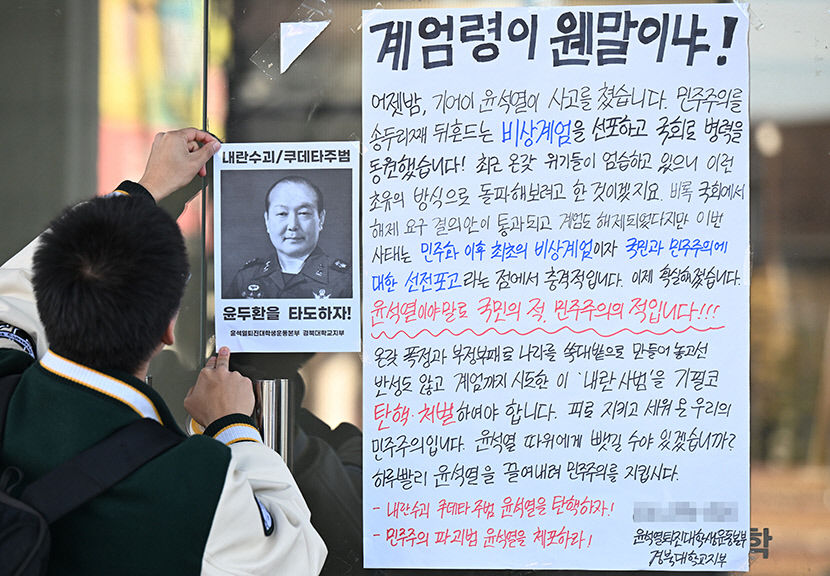 내란수괴/쿠데타주범
윤두환을 타도하자!
윤석열퇴진대학생운동본부 경북대학교지부
계엄령이 웬말이냐!
어젯밤, 기어이 윤석열이 사고를 쳤습니다. 민주주의를
송두리째 뒤흔드는 비상계엄을 선포하고 국회로 병력을
동원했습니다! 최근 온갖 위기들이 엄습하고 있으니 이런
초유의 방식으로 돌파해보려고 한 것이겠지요. 비록 국회에서
해제 요구 결의안이 통과되고 계엄도 해제되었다지만 이번
사태는 민주화 이후 최초의 비상계엄이자 국민과 민주주의에
대한 선전포고라는 점에서 충격적입니다. 이제 확실해졌습니다.
윤석열이야말로 국민의 적, 민주주의의 적입니다!!!
온갖 폭정과 부정부패로 나라를 쑥대밭으로 만들어 놓고선
반성도 않고 계엄까지 시도한 이 '내란 사범'을 기필코
탄핵·처벌하여야 합니다. 피로 지키고 세워온 우리의
민주주의입니다. 윤석열 따위에게 뺏길 수야 있겠습니까?
하루빨리 윤석열을 끌어내려 민주주의를 지킵시다.
- 내란수괴 쿠데타주범 윤석열을 탄핵하자!
- 민주주의 파괴범 윤석열을 체포하라!
윤석열퇴진대학생운동본부
경북대학교지부
학